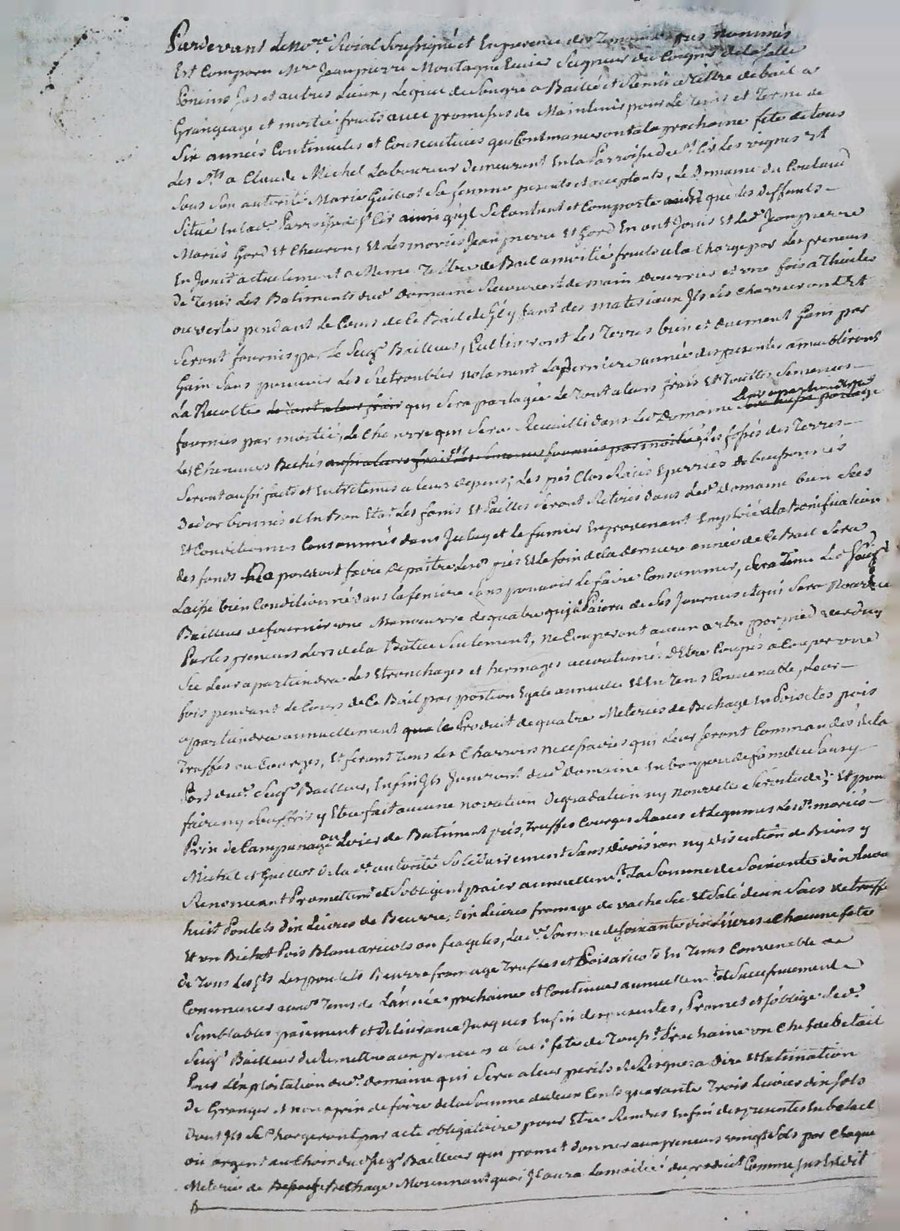 Pardevant le No.re Roial Soussigné et En presence des Temoins nommés
Est Comparu M.re Jean pierre Montagne Ecuier Seigneur du de la Salle
et autres Lieux, Lequel de Son gré a Baillé et Remis a tiltre de bail a
Grangeage et moitié fruits avec promesses de Maintenir pour Le tems et Terme de
Six années Continuelles et Consecutives qui Commanceront a la prochaine fête de tous
Les S.ts a Claude Michel Laboureur demeurant En la Parroisse de S.t Cir Les vignes Et
Sous Son autorité Marie Guillot Sa femme presents et acceptants, Le Domaine du
Situé En lad. Parroisse de S.t Cir ainsi qu'jl Se Contient et Comporte ainsi que les deffunts
Mariés Gord Et Et les mariés Jean pierre Et Gord En ont Jouis Et led. Jean pierre
En Jouit actuellement a Meme Tiltre de Bail a moitié fruits a la Charge par Les preneurs
De Tenir Les Batiments dud. Domaine de main et une fois a Thuiles
ouvertes pendant Le Cours de Ce Bail et S'jl y faut des materiaux Jls les Charrieront Et
Seront fournis par Le Seig.r Bailleur, Cultiveront Les Terres bien et duement Gain par
Gain Sans pouvoir Les Retroubler notament La derniere année des presentes
La Recolte le tout a leur frais qui Sera partagée Le Tout a leurs frais Et Touttes Semences
fournies par moitié, Le Chenvre qui Sera Recueilli dans Led. Domaine
Les Chenevres Bechés aussi a leurs frais et les semences fournies par moitié, Les fossés des Terres
Seront aussi faits et Entretenus a leurs depens; Les prés Clos
En Bon Etat Les foins Et Pailles Seront Retirés dans Led. Domaine bien Secs
Et Conditionnés Consommés dans Jceluy et le fumier En provenant Emploié a la Bonification
des fonds pourront faire paître Les d. prés Et le foin de la derniere année de Ce Bail Sera
Laissé bien Conditionné dans la feniere Sans pouvoir Le faire Consommer, Sera Tenu Led. Seig.r
Bailleur de fournir une Manoeuvre de quatre qu'jl Paiera de Ses Journées Et qui Sera Nourrie
Par les preneurs Lors de la Batteue Seulement, Ne Couperont aucun arbre par pied verd ny
Sec Leur apartiendra Les Etronchages et hermages accoutumés D'Etre Coupés a Couper une
fois pendant Le Cours de Ce Bail par portion Egale annuelle Et En Tems Convenable, Leur
apartiendra annuellement que le Produit de quatre Meteries de Bechage En Poisettes pois
Truffes ou Courges, Et feront Tous Les Charrois necessaires qui Leur Seront Commandés de la
Part dud. Seig.r Bailleur, Enfin Jls Joueront dud. Domaine En bon pere de famille Sans y
faire ny Souffrir y Etre fait aucune novation Degradation ny nouvelle Servitude; Et pour
Prix de Campanage Loier de Batiment prés, Truffes Courges Raves et Legumes Les d. mariés
Michel et Guillot de la d. autorité Solidairement Sans division ny discution de Biens y
Renonceant Promettent et S'obligent paier annuellem.t La Somme de Soixante dix Livres
huit Poulets dix Livres de Beurre, dix Livres fromage de vache Sec Et Salé deux Sacs de truffes
Et un Bichet Pois Blom aricots ou feageles, La d. Somme de Soixante dix Livres a Chacune fete
De Tous Les S.ts Les poulets Beurre fromage Truffes et Pois aricots En Tems Convenable de
Commencer aud. Tems de L'année prochaine et Continuer annuellem.t et Sucessivement a
Semblables paiement et delivrance Jusques En fin des presentes, Promet et S'oblige Led.
Seig.r Bailleur de Remettre aux preneurs a lad. fete de Touss.t Prochaine un Chef de betail
Pour L'Exploitation dud. domaine qui Sera a leur perils et Risques a Dire et Estimation
De Granger et non a prix de foire de la Somme de deux Cents quarante Trois Livres dix Sols
Dont Jls Se Chargeront par acte obligatoire pour Etre Rendus En fin des presentes En betail
ou argent au Choix dud. Seig.r Bailleur qui promet donner aux preneurs vingt Sols par Chaque
Meterie de Bechage Moiennant quoi Jl aura La moitié du produit Comme Jl est dit